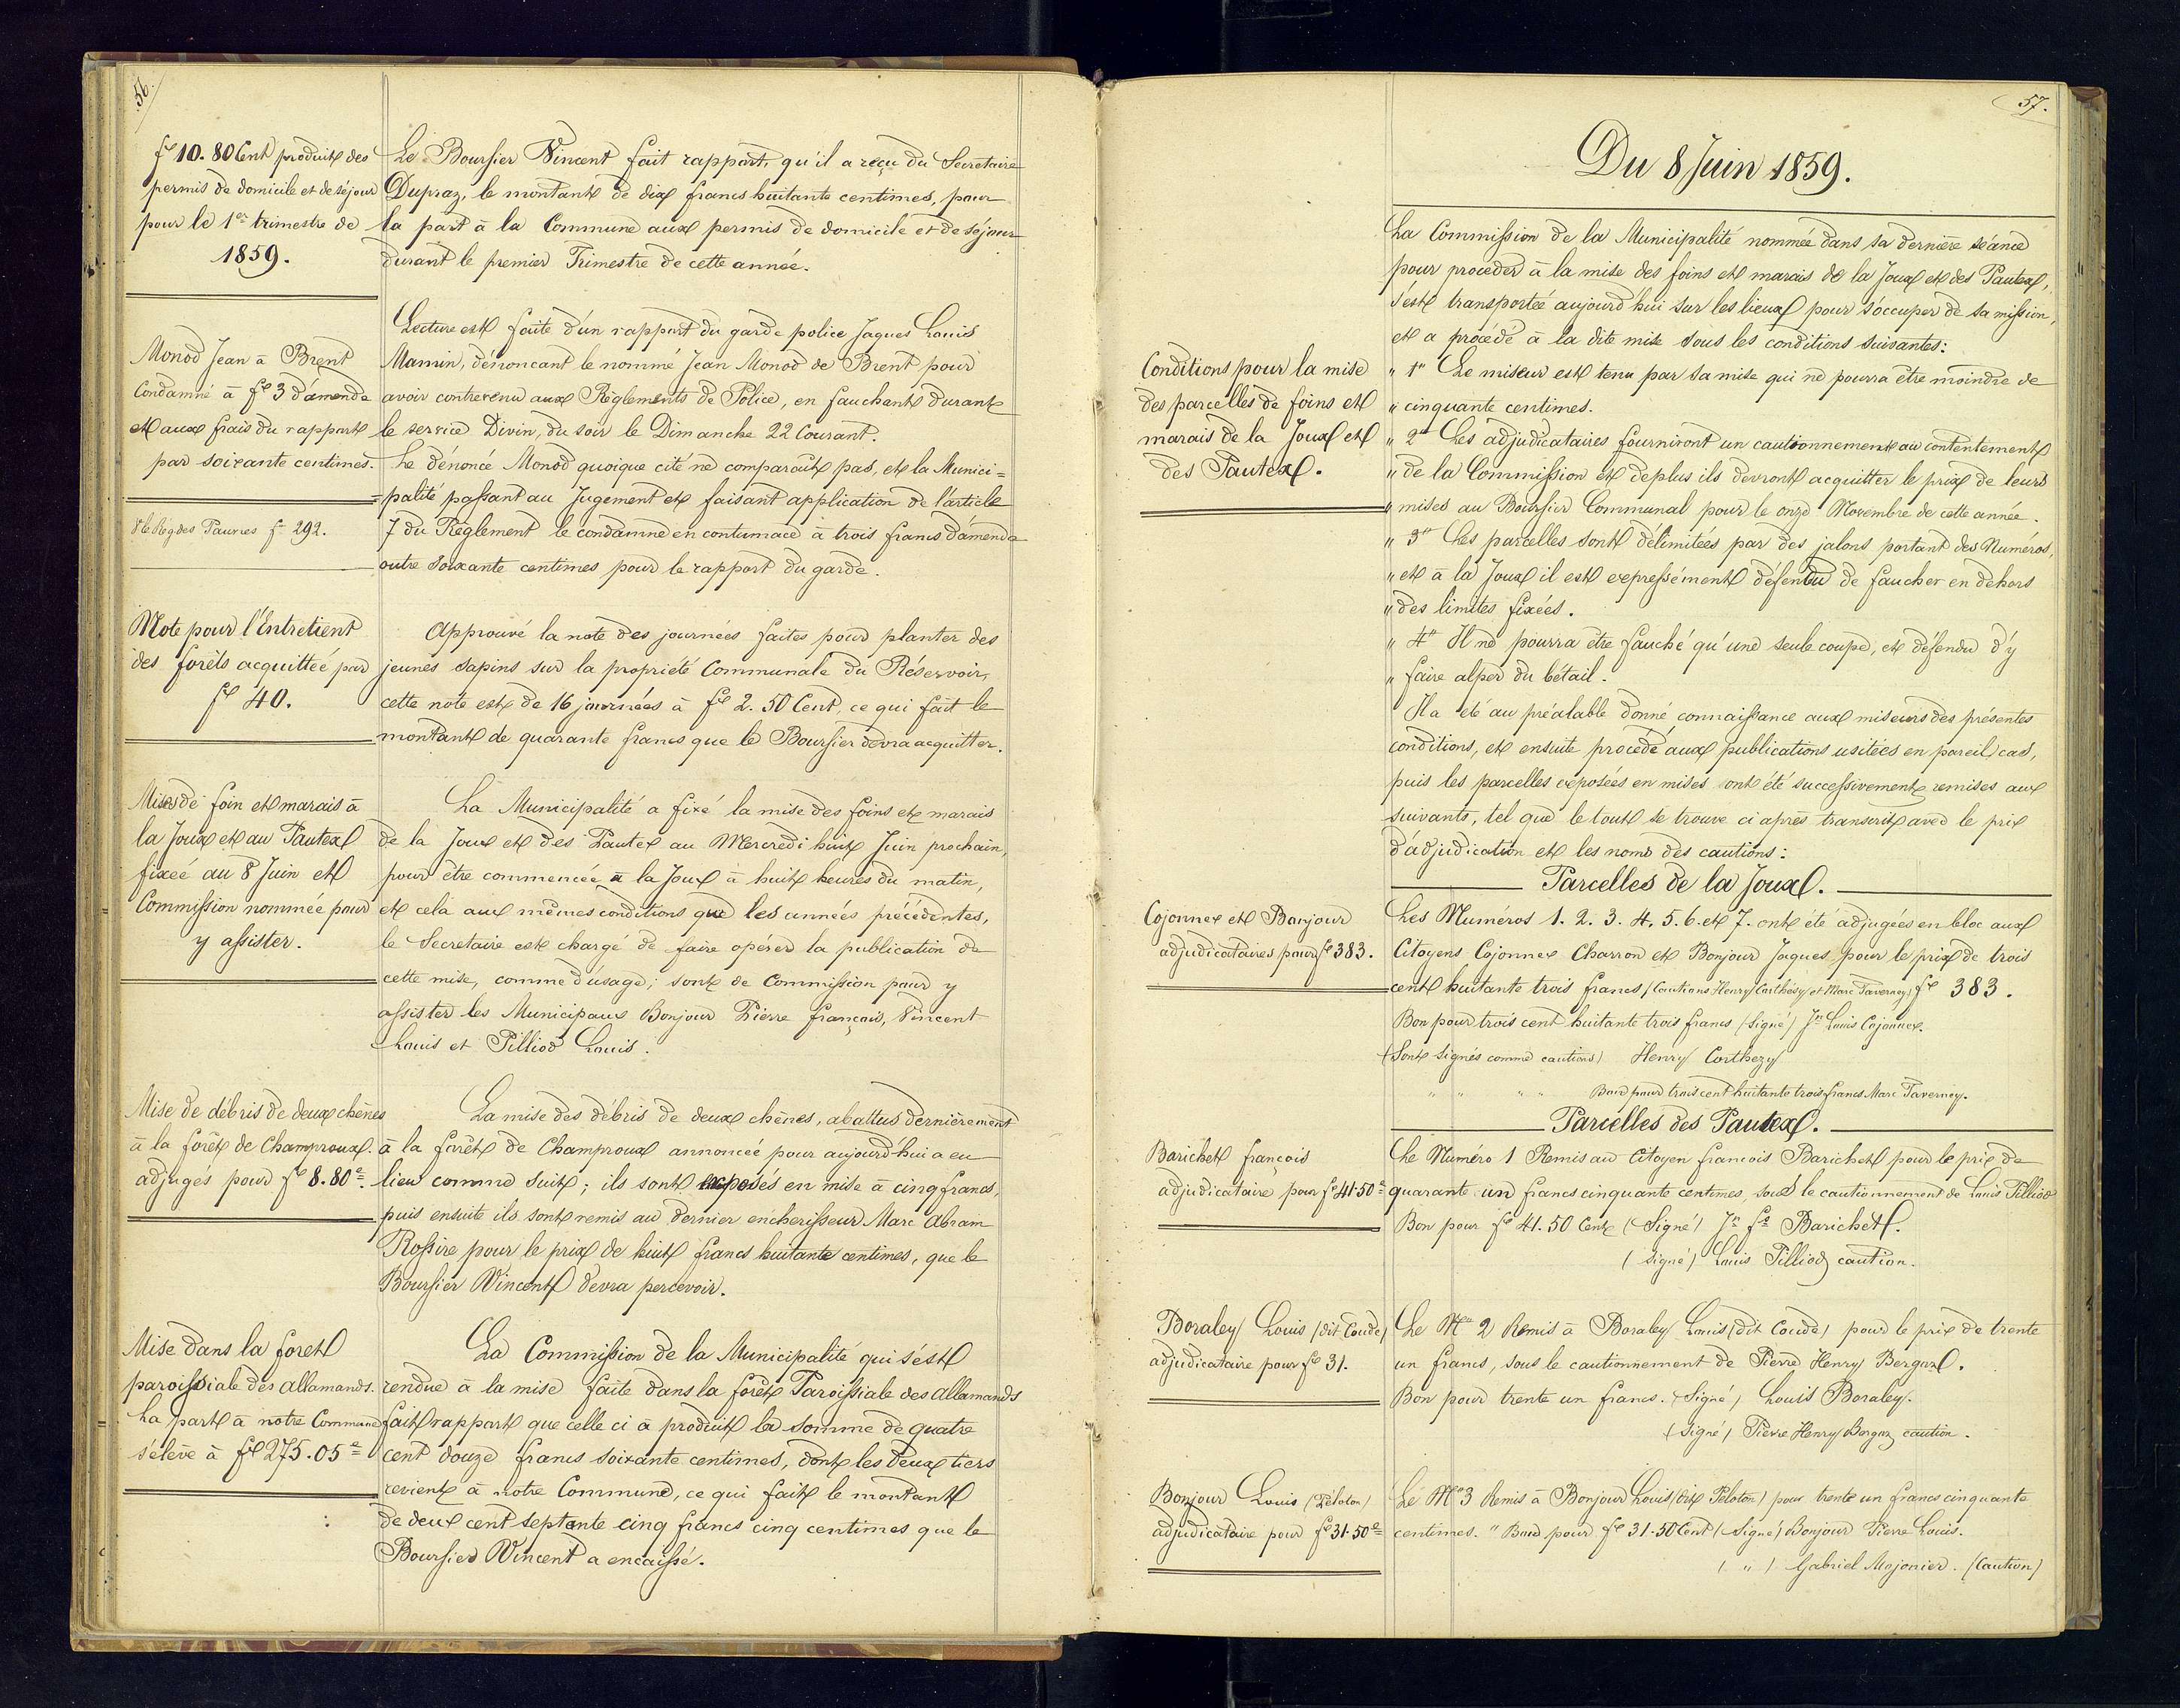 56.
fs 10. 80 Cent produit des
permis de domicile et de séjour
pour le 1er trimestre de
1859.
Le Boursier Vincent fait rapport, qu'il a reçu du Secretaire
Dupraz, le montant de dix francs huitante centimes, pour
la part à la Commune aux permis de domicile et de séjour
durant le premier Trimestre de cette année.
Monod Jean à Brent
Condamné à fs 3 d'amende
et aux frais du rapport
par soixante centimes.
V le Reg des Pauvres f° 292.
Lecture est faite d'un rapport du garde police Jaques Louis
Mamin, dénoncant le nommé Jean Monod de Brent pour
avoir contrevenu aux Règlements de Police, en fauchant durant
le service Divin, du soir le Dimanche 22 Courant.
Le dénoncé Monod quoique cité ne comparaît pas, et la Munici=
=palité passant au Jugement et faisant application de l'article
7 du Règlement le condamne en contumace à trois francs d'amende
outre soixante centimes pour le rapport du garde.
Note pour l'Entretient
des forêts acquittée par
fs 40.
Approuvé la note des journées faites pour planter des
jeunes sapins sur la propriété Communale du Réservoir,
cette note est de 16 journées à fs 2. 50 Cent, ce qui fait le
montant de quarante francs que le Boursier devra acquitter.
Mises de foin et marais à
la Joux et au Pautex
fixée au 8 Juin et
Commission nommée pour
y assister.
La Municipalité a fixé la mise des foins et marais
de la Joux et des Pautex au Mercredi huit Juin prochain,
pour être commencée à la Joux à huit heures du matin,
et cela aux mêmes conditions que les années précédentes,
le Secretaire est chargé de faire opérer la publication de
cette mise, comme d'usage; sont de Commission pour y
assister les Municipaux Bonjour Pierre françois, Vincent
Louis et Pilliod Louis.
Mise de débris de deux chênes
à la forêt de Champroux.
adjugés pour fs 8. 80 c.
La mise des débris de deux chênes, abattus dernièrement
à la forêt de Champroux annoncée pour aujourd'hui a eu
lieu comme suit; ils sont exposés en mise à cinq francs,
puis ensuite ils sont remis au dernier encherisseur Marc Abram
Rossire pour le prix de huit francs huitante centimes, que le
Boursier Vincent devra percevoir.
Mise dans la foret
paroissiale des Allamands.
La part à notre Commune
s'élève à fs 275. 05 c
La Commission de la Municipalité qui s'est
rendue à la mise faite dans la forêt Paroissiale des Allamands
fait rapport que celle ci à produit la somme de quatre
cent douze francs soixante centimes, dont les deux tiers
revient à notre Commune, ce qui fait le montant
de deux cent septante cinq francs cinq centimes que le
Boursier Vincent a encaissé.
57.
Du 8 Juin 1859.
La Commission de la Municipalité nommée dans sa dernière séance
pour procéder à la mise des foins et marais de la Joux et des Pautex,
s'est transportée aujourd'hui sur les lieux pour s'occuper de sa mission,
et a procédé à la dite mise sous les conditions suivantes:
Conditions pour la mise
des parcelles de foins et
marais de la Joux et
des Pautex.
" 1° Le miseur est tenu par sa mise qui ne pourra être moindre de
" cinquante centimes.
" 2° Les adjudicataires fourniront un cautionnement au contentement
" de la Commission et de plus ils devront acquitter le prix de leurs
" mises au Boursier Communal pour le onze Novembre de cette année.
" 3° Les parcelles sont délimitées par des jalons portant des Numéros,
" et à la Joux il est expressément défendu de faucher en dehors
" des limites fixées.
" 4° Il ne pourra être fauché qu'une seule coupe, et défendu d'y
" faire alper du bétail.
Il a été au préalable donné connaissance aux miseurs des présentes
conditions, et ensuite procédé aux publications usitées en pareil cas,
puis les parcelles exposées en mises ont été successivement remises aux
suivants, tel que le tout se trouve ci après transcrit avec le prix
d'adjudication et les noms des cautions:
Parcelles de la Joux.
Cojonnex et Bonjour
adjudicataires pour fs 383.
Les Numéros 1. 2. 3. 4. 5. 6. et 7. ont été adjugées en bloc aux
Citoyens Cojonnex Charron et Bonjour Jaques pour le prix de trois
cent huitante trois francs (Cautions Henry Corthésy et Marc Taverney) fs 383.
Bon pour trois cent huitante trois francs (Signé) Jn Louis Cojonnex.
(Sont signés comme cautions) Henry Corthezy
" " " " Bon pour trois cent huitante trois francs Marc Taverney.
Parcelles des Pautex.
Barichet françois
adjudicataire pour fs 41. 50 c
Le Numéro 1 Remis au Citoyen francois Barichet pour le prix de
quarante un francs cinquante centimes, sous le cautionnement de Louis Pilliod
Bon pour fs 41. 50 Cent (Signé) Jn fs Barichet.
(Signé) Louis Pilliod caution.
Boraley Louis (dit Coude)
adjudicataire pour fs 31.
Le No 2 Remis à Boraley Louis (dit Coude) pour le prix de trente
un francs, sous le cautionnement de Pierre Henry Bergoz.
Bon pour trente un francs. (Signé) Louis Boraley.
(Signé) Pierre Henry Bergoz caution.
Bonjour Louis (Peloton)
adjudicataire pour fs 31. 50 c
Le No 3 Remis à Bonjour Louis (dit Peloton) pour trente un francs cinquante
centimes. " Bon pour fs 31. 50 Cent (Signé) Bonjour Pierre Louis.
( " ) Gabriel Mojonier. (Caution)